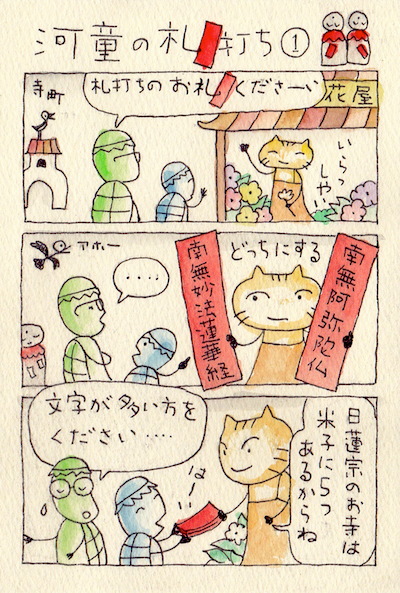 河童の札打ち①
寺町
札打ちのお札くださーい
花屋
いらっ
しゃい
アホー
‥‥
南無妙法蓮華経
どっちにする
南無阿弥陀仏
文字が多い方を
ください‥‥
はーい
日蓮宗のお寺は
米子に5つ
あるからね